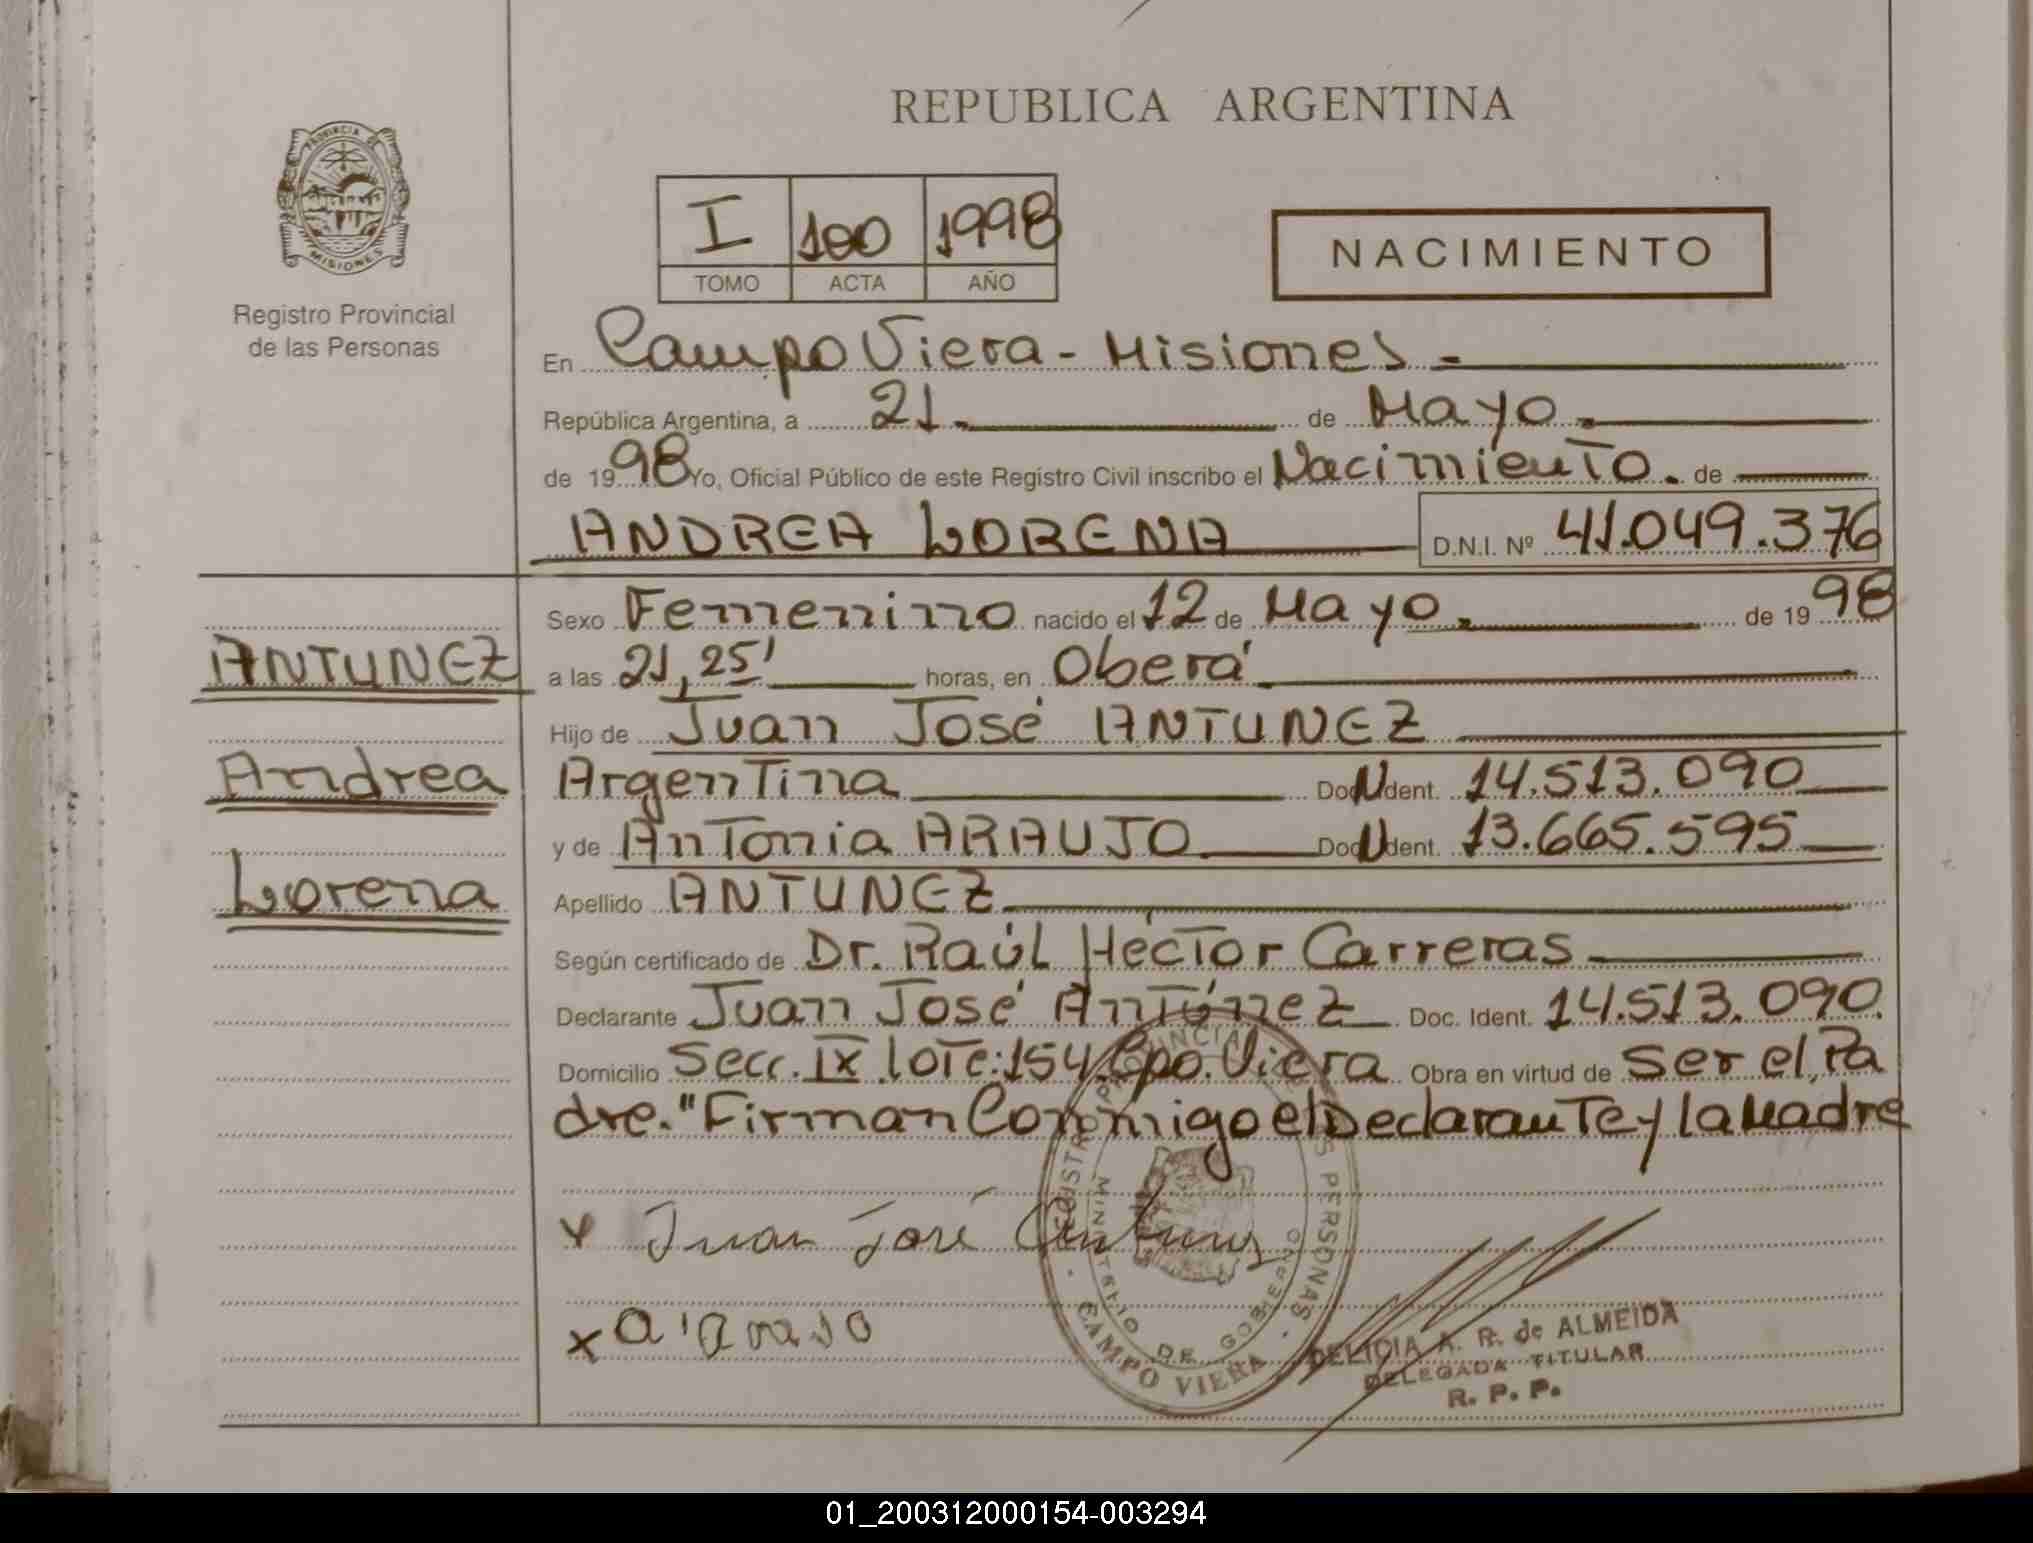 REPUBLICA ARGENTINA
PROVINCIA DE
MISIONES
Registro Provincial
de las Personas
I 100 1998
TOMO ACTA AÑO
NACIMIENTO
En Campo Viera - Misiones -
República Argentina, a 21. de Mayo.
de 1998 Yo, Oficial Público de este Registro Civil inscribo el Nacimiento. de
ANDREA LORENA D.N.I. Nº 41.049.376
Sexo Femenino nacido el 12 de Mayo. de 1998
ANTUNEZ
a las 21,25' horas, en Oberá
Hijo de Juan José ANTUNEZ
Andrea
Argentina Doc. Ident. 14.513.090
y de Antonia ARAUJO Doc. Ident. 13.665.595
Lorena
Apellido ANTUNEZ
Según certificado de Dr. Raúl Héctor Carreras
Declarante Juan José Antúnez Doc. Ident. 14.513.090.
Domicilio Secc. IX lote: 154 Cpo. Viera Obra en virtud de ser el Pa
dre. "Firman Conmigo el Declarante y la Madre
x Juan José Antunez
x
REGISTRO PROVINCIAL DE LAS PERSONAS
MINISTERIO DE GOBIERNO
CAMPO VIERA
DELICIA A. R. de ALMEIDA
DELEGADA TITULAR
R. P. P.
01_200312000154-003294